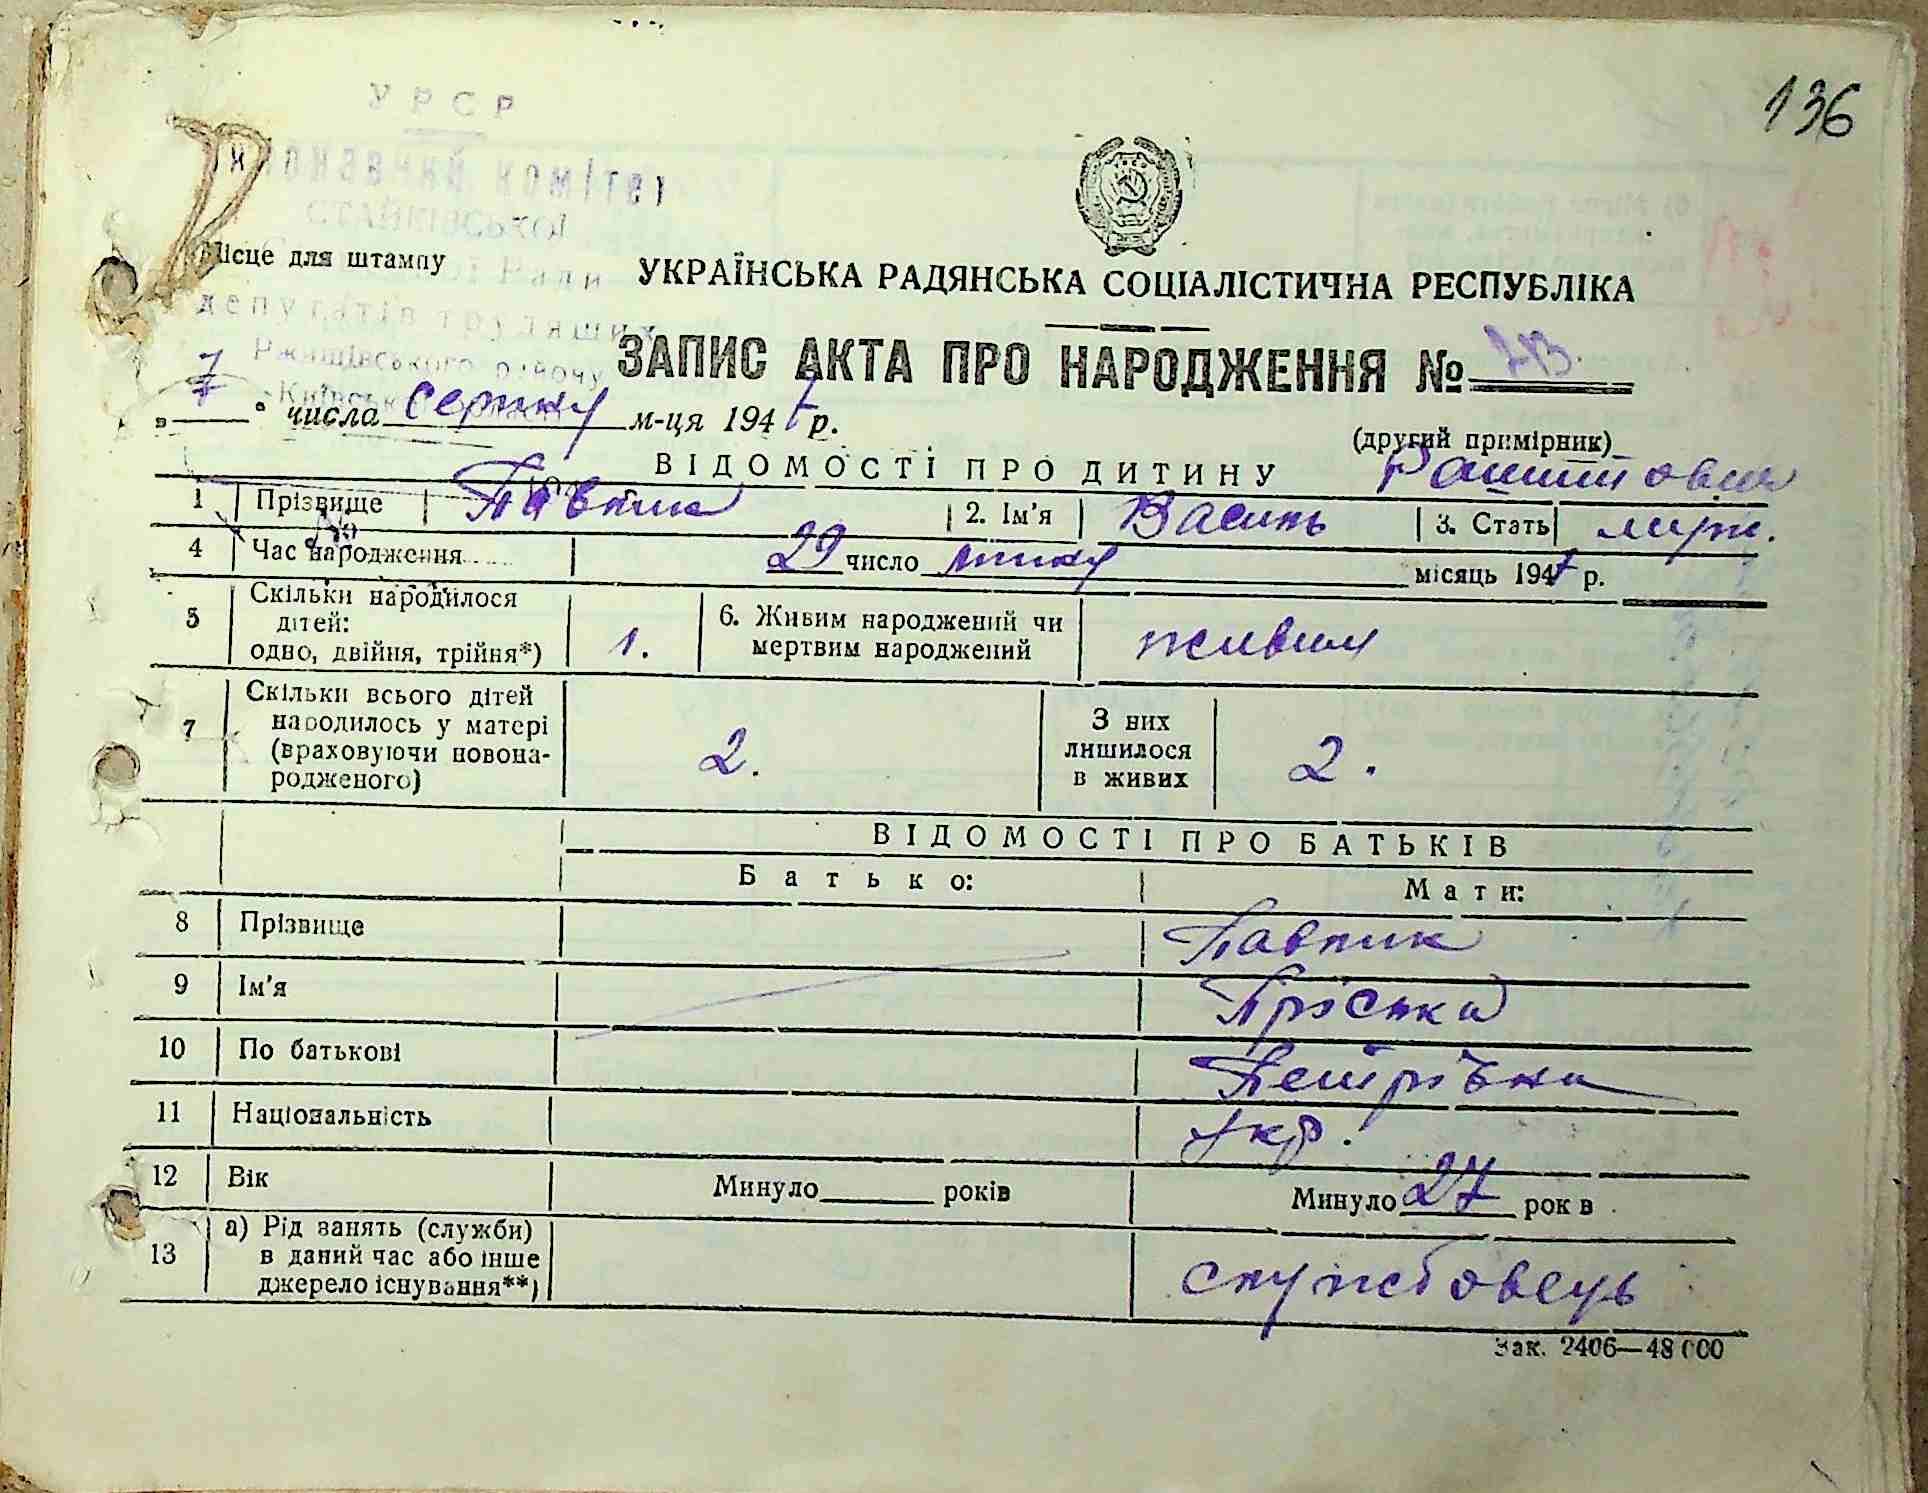 136
УРСР
Виконавчий комітет
СТАЙКІВСЬКОЇ
Сільської Ради
депутатів трудящих
Ржищівського району
Київської
Місце для штампу
УКРАЇНСЬКА РАДЯНСЬКА СОЦІАЛІСТИЧНА РЕСПУБЛІКА
ЗАПИС АКТА ПРО НАРОДЖЕННЯ №
„ 7 " числа серпня м-ця 1947 р.
(другий примірник)
ВІДОМОСТІ ПРО ДИТИНУ
1 Прізвище Павлик 2. Ім'я Василь 3. Стать муж.
4 Час народження 29 число липня місяць 1947 р.
5 Скільки народилося
дітей:
одно, двійня, трійня*) 1.
6. Живим народжений чи
мертвим народжений живим
7 Скільки всього дітей
народилось у матері
(враховуючи новона-
родженого) 2.
З них
лишилося
в живих 2.
ВІДОМОСТІ ПРО БАТЬКІВ
Батько: Мати:
8 Прізвище Павлик
9 Ім'я Пріська
10 По батькові Петрівна
11 Національність укр.
12 Вік Минуло років Минуло 27 років
13 а) Рід занять (служби)
в даний час або інше
джерело існування**) службовець
Зак. 2406—48 000